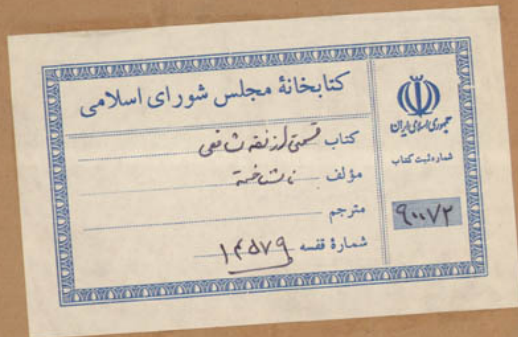 کتابخانهٔ مجلس شورای اسلامی
کتاب قسمتی از فقه شافعی
مؤلف ناشناخته
مترجم
شمارهٔ قفسه ۱۴۵۷۹
جمهوری اسلامی ایران
شماره ثبت کتاب
۹۰۰۷۲